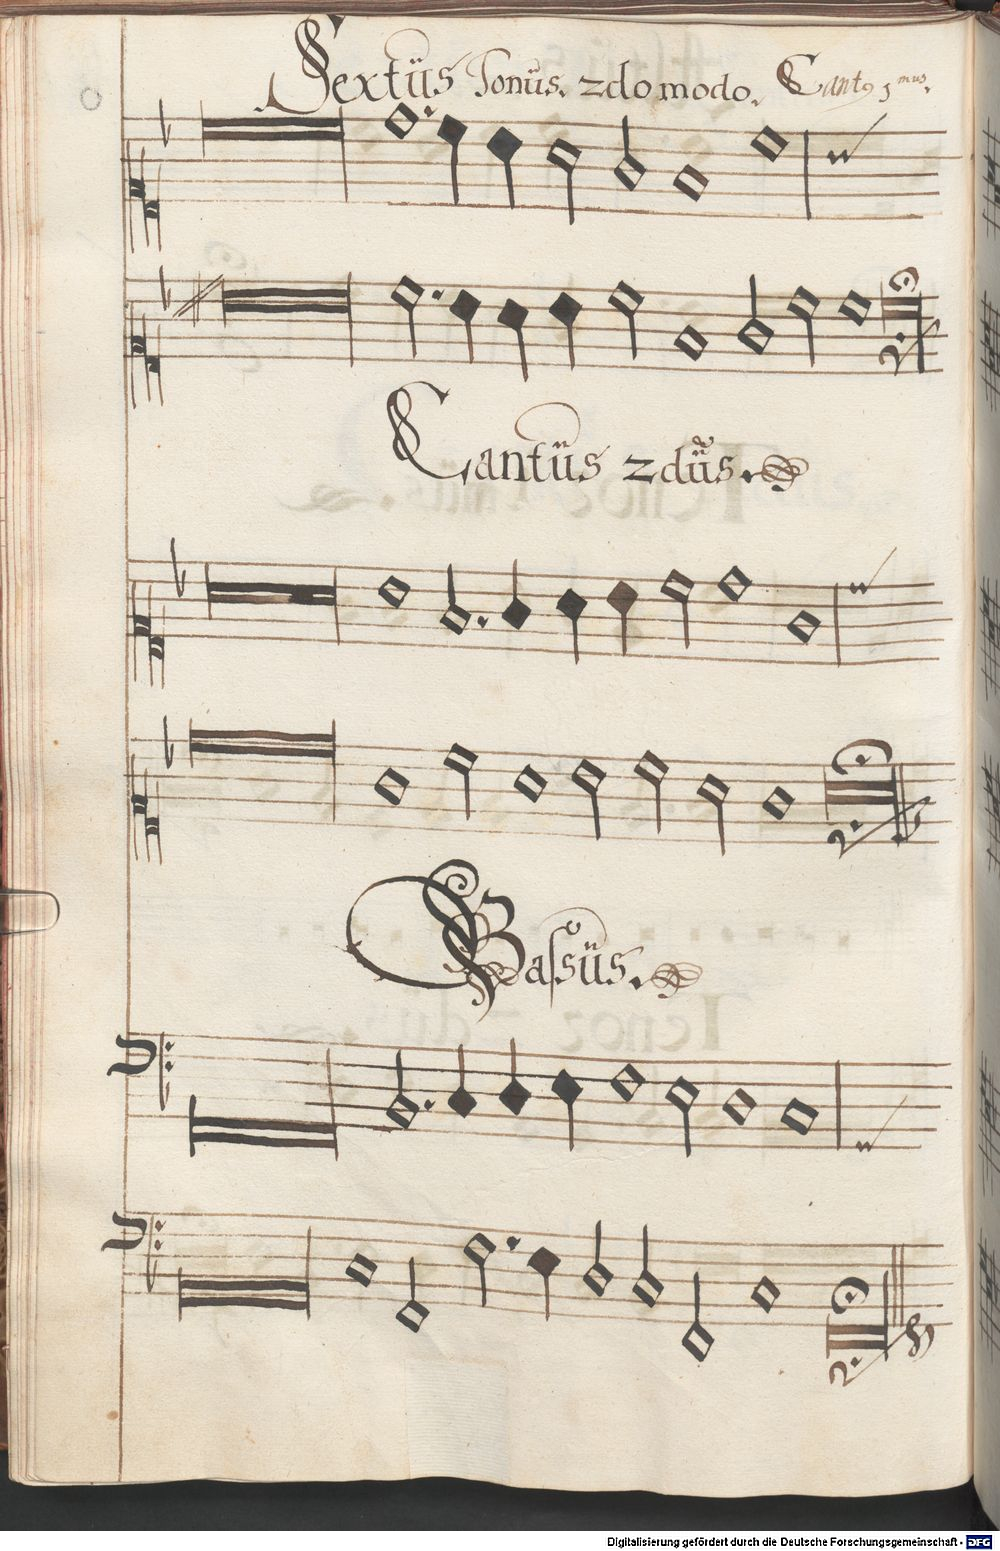 Sextüs Tonüs. 2do modo. Cant9 1mus.
Cantüs 2düs.
Basſüs.
Digitalisierung gefördert durch die Deutsche Forschungsgemeinschaft - DFG